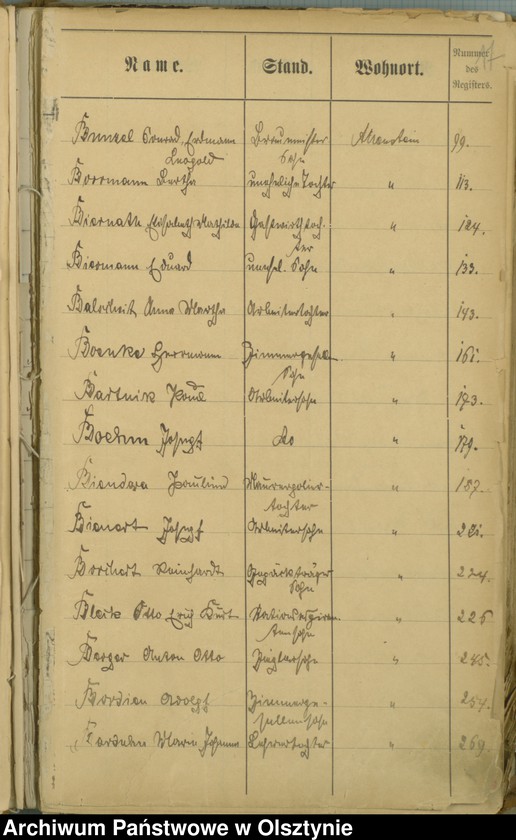 Name. Stand. Wohnort. Nummer des Registers.
17
Bunzel Conrad Erdmann Leopold Braumeister Sohn Allenstein 99.
Borrmann Bertha uneheliche Tochter " 113.
Biernath Elisabeth Mathilde Gastwirthtochter " 124.
Biermann Eduard unehel. Sohn " 133.
Anna Martha Arbeitertochter " 143.
Boenke Herrmann Zimmergesellen Sohn " 161.
Bartnik Paul Arbeitersohn " 173.
Boehm Joseph do " 179.
Biendara Pauline Maurerpolier-tochter " 187.
Bienert Joseph Arbeitersohn "
Borchert Reinhardt Gepäckträger Sohn " 224.
Otto Erich Kurt " 225
Berger Anton Otto Zieglersohn " 245.
Bordien Adolf Zimmerge-sellensohn " 257.
Maria Lehrertochter " 269.
Archiwum Państwowe w Olsztynie